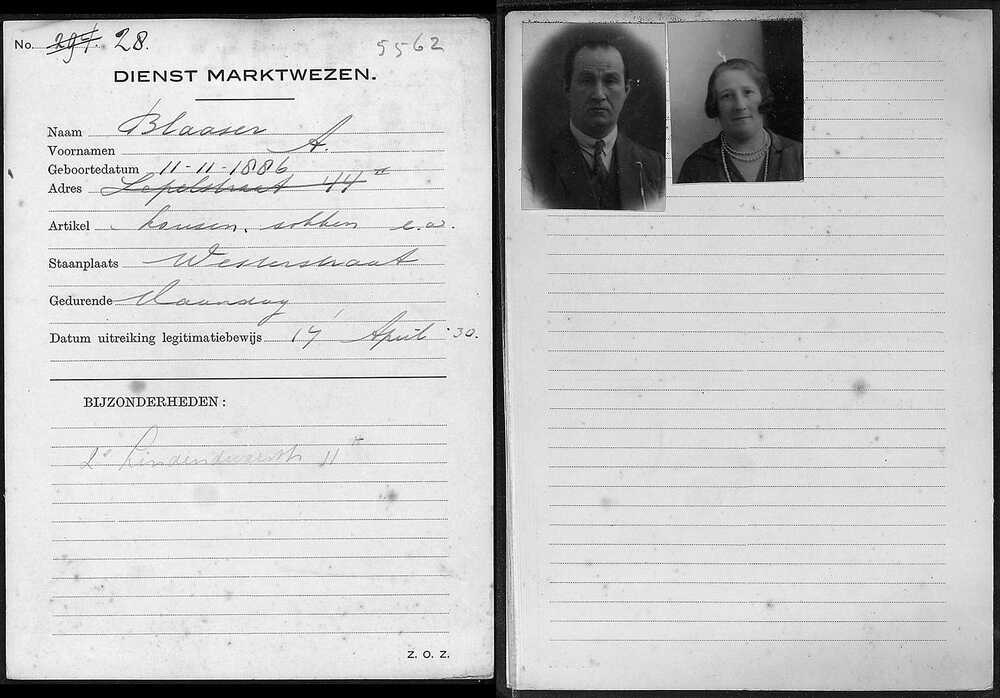 No. 297. 28.
5562
DIENST MARKTWEZEN.
Naam Blaaser
Voornamen A.
Geboortedatum 11-11-1886
Adres Lepelstraat 44 II
Artikel kousen, sokken e.a.
Staanplaats Westerstraat
Gedurende Maandag
Datum uitreiking legitimatiebewijs 17 April '30.
BIJZONDERHEDEN:
2e Lindendwarsstr 11 II
Z. O. Z.